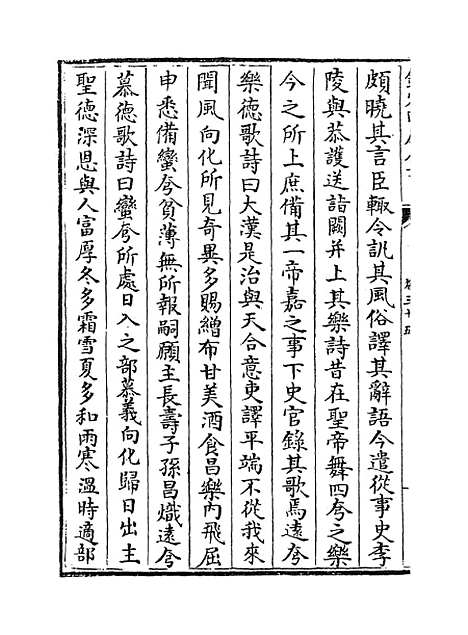 頗曉其言臣輙令訊其風俗譯其辭語今遣從事史李
陵與恭護送詣闕并上其樂詩昔在聖帝舞四夸之樂
今之所上庶備其一帝嘉之事下史官錄其歌焉遠夸
樂徳歌詩曰大漢是治與天合意吏譯平端不從我來
聞風向化所見竒異多賜繒布甘美酒食昌樂肉飛屈
申悉備蠻夸貧薄無所報嗣願主長壽子孫昌熾遠夸
慕徳歌詩曰蠻夸所處日入之部慕義向化歸日出主
聖徳深恩與人富厚冬多霜雪夏多和雨寒溫時適部